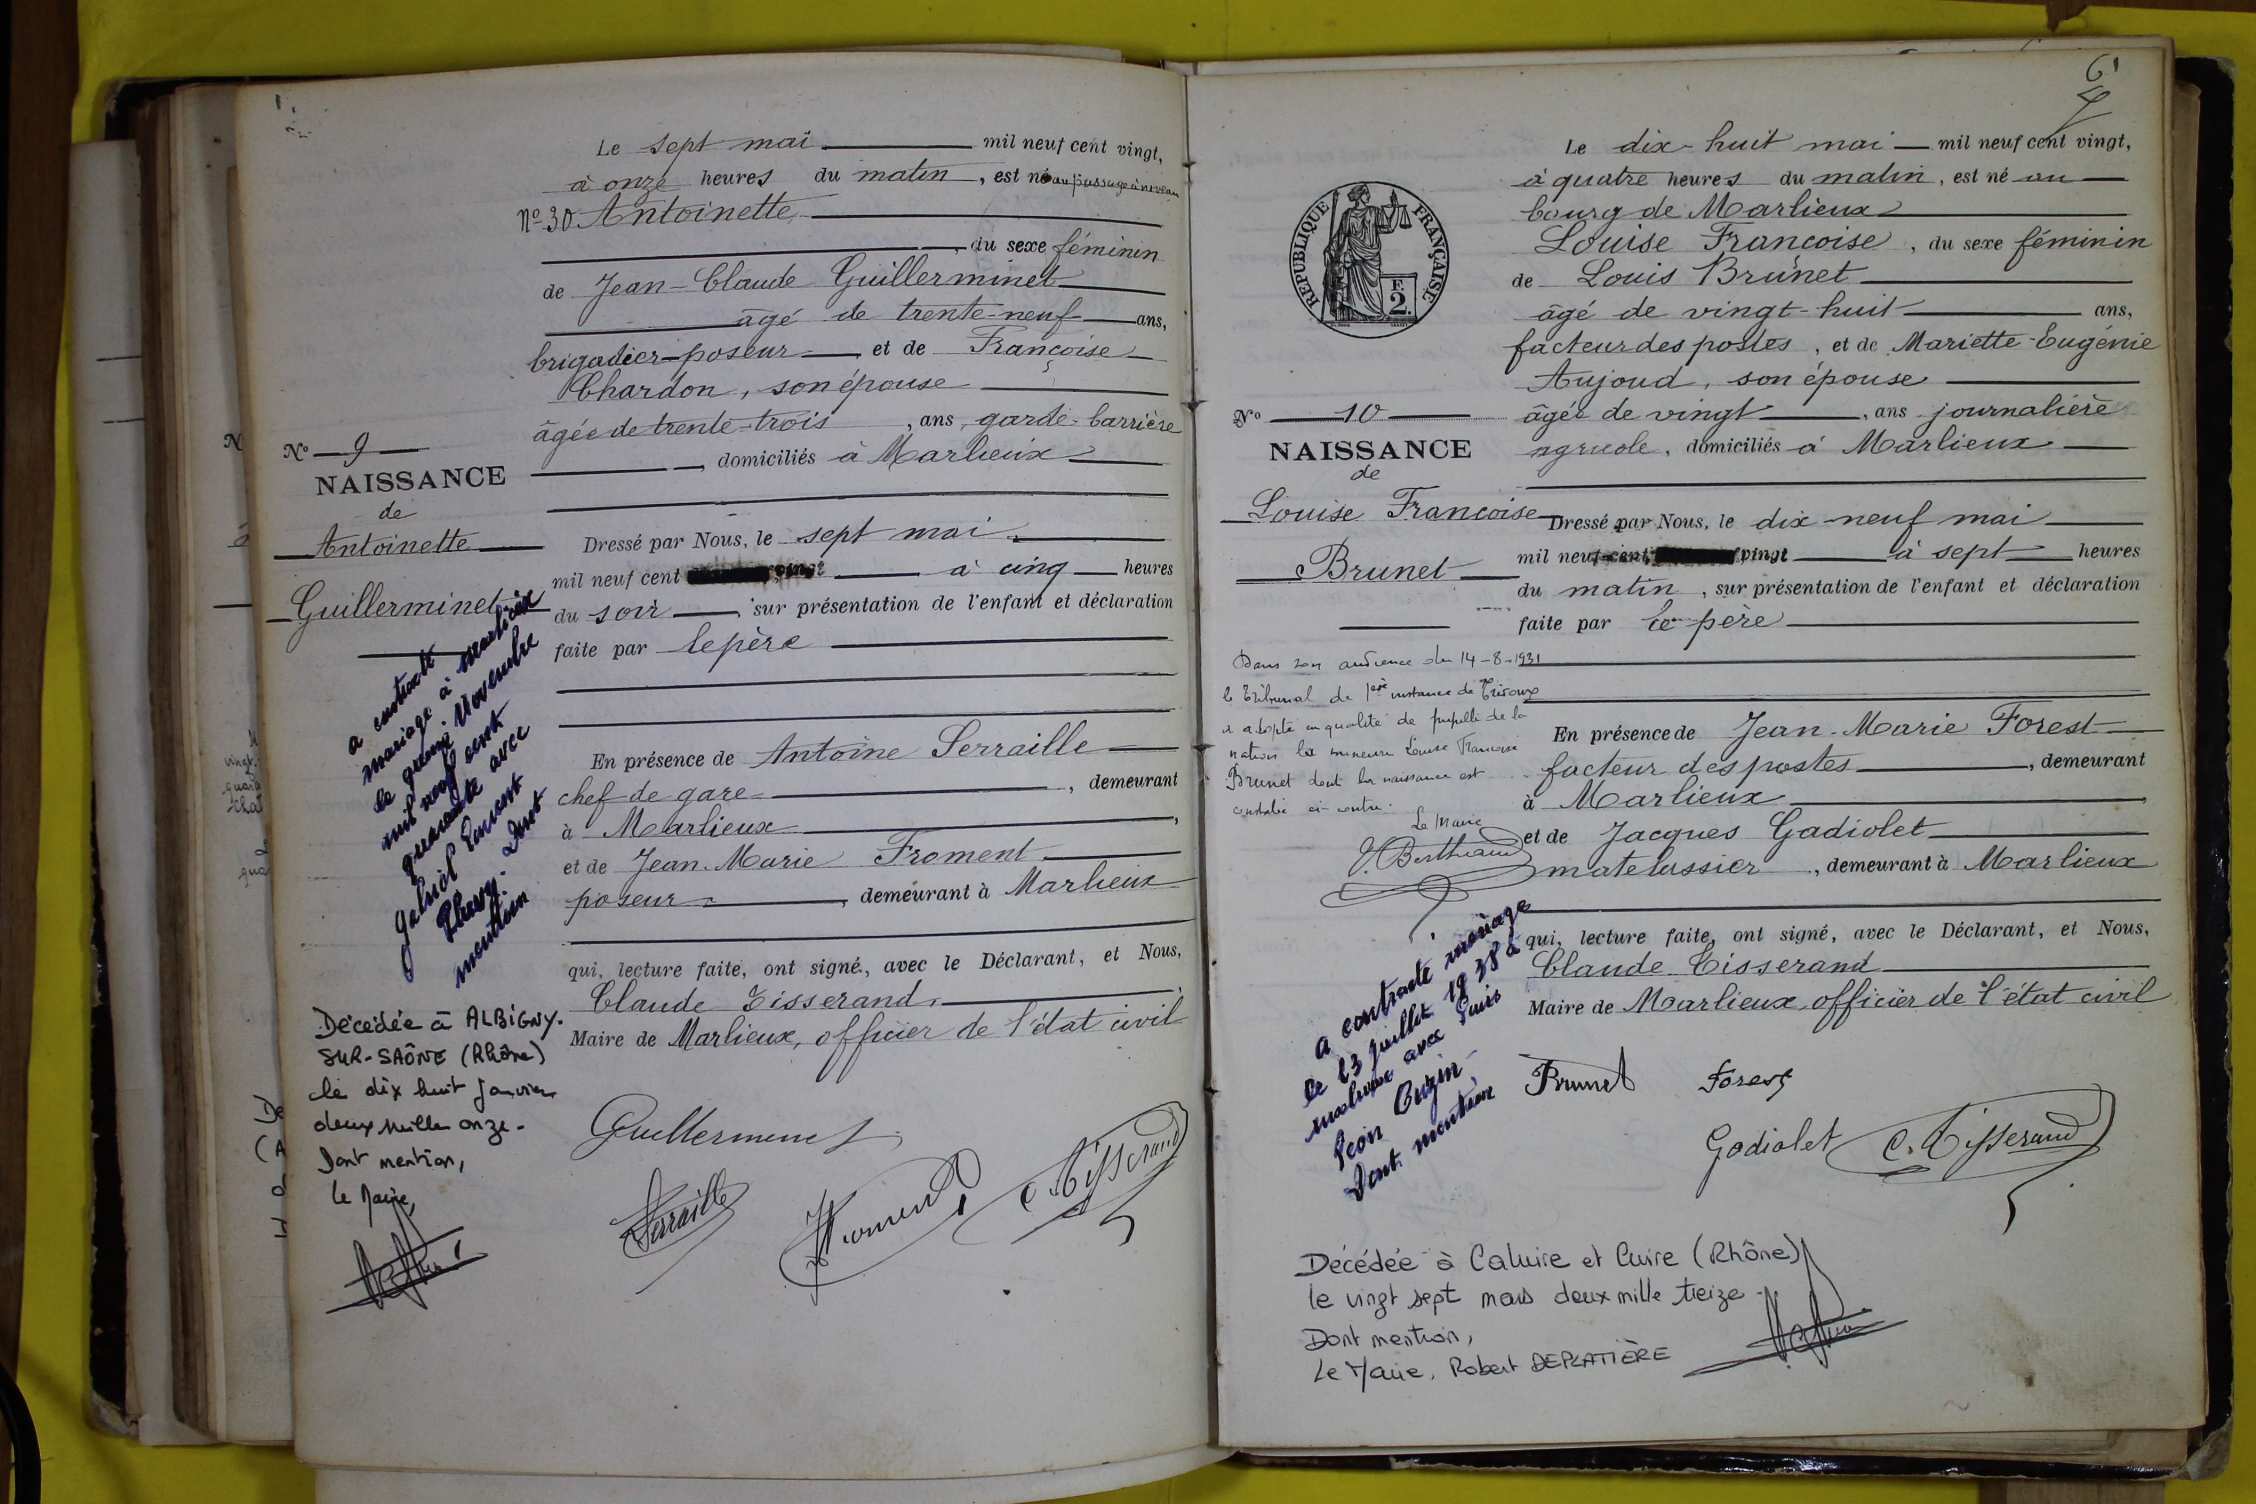 Le sept mai mil neuf cent vingt,
à onze heures du matin, est né au passage à niveau
No 30 Antoinette
, du sexe féminin
de Jean-Claude Guillerminet
âgé de trente-neuf ans,
brigadier-poseur et de Françoise
Chardon, son épouse
âgée de trente-trois, ans, garde-barrière
, domiciliés à Marlieux
No 9
NAISSANCE
de
Antoinette
Guillerminet
Dressé par Nous, le sept mai
mil neuf cent vingt à cinq heures
du soir, sur présentation de l'enfant et déclaration
faite par le père
En présence de Antoine Serraille
chef de gare, demeurant
à Marlieux,
et de Jean-Marie Froment
poseur, demeurant à Marlieux
qui, lecture faite, ont signé, avec le Déclarant, et Nous,
Claude Tisserand,
Maire de Marlieux, officier de l'état civil
a contracté
mariage à Marlieux
le Novembre
mil neuf cent
quarante avec
Gabriel
Dont
mention
Décédée à ALBIGNY-
SUR-SAÔNE (Rhône)
le dix huit Janvier
deux mille onze.
Dont mention,
Le Maire,
Guillerminet
Serraille
Froment
C. Tisserand
6
Le dix-huit mai mil neuf cent vingt,
à quatre heures du matin, est né au
bourg de Marlieux
Louise Françoise, du sexe féminin
de Louis Brunet
âgé de vingt-huit ans,
facteur des postes, et de Mariette-Eugénie
Aujoud, son épouse
âgée de vingt, ans journalière
agricole, domiciliés à Marlieux
REPUBLIQUE FRANÇAISE
F.
2.
No 10
NAISSANCE
de
Louise Françoise
Brunet
Dressé par Nous, le dix-neuf mai
mil neuf cent vingt à sept heures
du matin, sur présentation de l'enfant et déclaration
faite par le père
Dans son audience du 14-8-1931
le Tribunal de 1ère instance de Trévoux
a adopté en qualité de pupille de la
nation la mineure Louise Françoise
Brunet dont la naissance est
constatée ci-contre.
Le Maire
En présence de Jean-Marie Forest
facteur des postes, demeurant
à Marlieux
et de Jacques Gadiolet
matelassier, demeurant à Marlieux
qui, lecture faite, ont signé, avec le Déclarant, et Nous,
Claude Tisserand
Maire de Marlieux, officier de l'état civil
a contracté mariage
le 23 juillet 1938 à
Marlieux avec Louis
Léon Cuzin
Dont mention
Brunet
Forest
Gadiolet
C. Tisserand
Décédée à Caluire et Cuire (Rhône)
le vingt sept mars deux mille treize.
Dont mention,
Le Maire, Robert DEPLATIÈRE